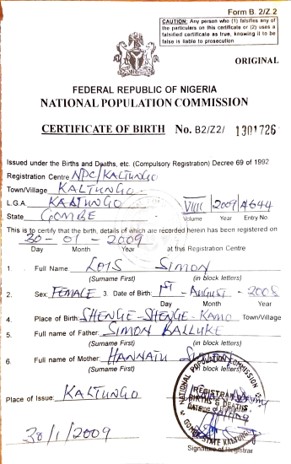 Form B. 2/Z 2
CAUTION: Any person who (1) falsifies any of
the particulars on this certificate or (2) uses a
falsified certificate as true, knowing it to be
false is liable to prosecution
ORIGINAL
FEDERAL REPUBLIC OF NIGERIA
NATIONAL POPULATION COMMISSION
CERTIFICATE OF BIRTH No. B2/Z2/ 1301726
Issued under the Births and Deaths, etc. (Compulsory Registration) Decree 69 of 1992
Registration Centre NPC/KALTUNGO
Town/Village KALTUNGO
L.G.A KALTUNGO VIII 2009 4644
State GOMBE Volume Year Entry No
This is to certify that the birth, details of which are recorded herein has been registered on
30-01-2009
Day Month Year at this Registration Centre
1. Full Name LOIS SIMON
(Surname First) (in block letters)
2. Sex FEMALE 3. Date of Birth: 1ST - AUGUST - 2005
Day Month Year
4. Place of Birth SHENGE-SHENGE-KAMO Town/Village
5. Full name of Father SIMON BALLUKE
(Surname First) (in block letters)
6. Full name of Mother HANNATU
(Surname First) (in block letters)
Place of Issue: KALTUNGO
NATIONAL POPULATION
REGISTRAR
BIRTHS & DEATHS
GOMBE STATE
30/1/2009
Signature of Registrar